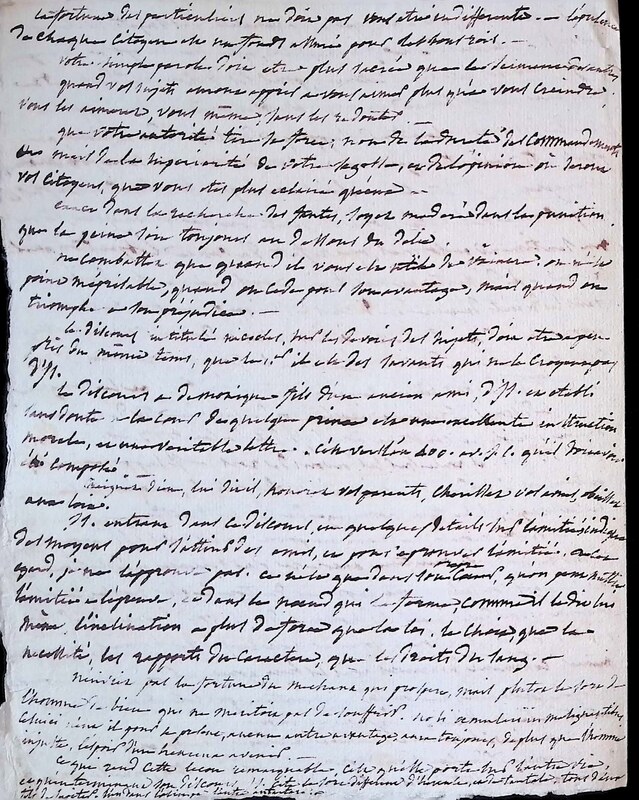 la fortune des particuliers ne doit pas vous être indifférente. — l'opulence
de chaque citoyen est un fonds assuré pour les bons rois. —
votre simple parole doit etre plus sacrée que les sermens des autres
quand vos sujets auront appris a vous aimer plus qu'a vous craindre.
vous les aimerez, vous meme sans les redouter. —
que votre autorité tire sa force, non de la dureté des commandements
mais de la superiorité de votre sagesse, et de l'opinion où seront
vos citoyens, que vous etes plus eclairé qu'eux —
exact dans la recherche des fautes, soyez modéré dans la punition.
que la peine soit toujours au dessous du délit.
ne combattez que quand il vous est utile de vaincre. on n'est
point méprisable, quand on cede pour son avantage, mais quand on
triomphe a son préjudice. —
le discours intitulé nicoclès, sur les devoirs des sujets, doit etre a peu
près du même tems, que le 1.er il est des savants qui ne le croyent pas
d'Is.
le discours a demonique fils d'un ancien ami, d'Is. et etabli
sans doute a la cour de quelque prince est une excellente instruction
morale, et une véritable lettre. c'est vers l'an 400. av. J.C. qu'il doit avoir
été composé
craignez dieu, lui dit il, honorez vos parents, cherissez vos amis, obéissez
aux loix.
Is. entrant dans le discours, en quelques details sur l'amitié, indique
des moyens pour s'attirer des amis, et pour éprouver l'amitié. a cet
égard, je ne l'approuve pas. ce n'est que dans son cœur, qu'on peut mettre
l'amitié a l'epreuve, et dans le nœud qui la forme comme il le dit lui
même, l'inclination a plus de force que la loi. le choix, que la
necessité, les rapports du caractere, que les droits du sang. —
n'enviez pas la fortune du mechant qui prospere, mais plutot le sort de
l'homme de bien qui ne meritoit pas de souffrir.
injuste, l'espoir d'un heureux avenir. —
ce que rend cette lecon remarquable, c'est qu'elle porte sur